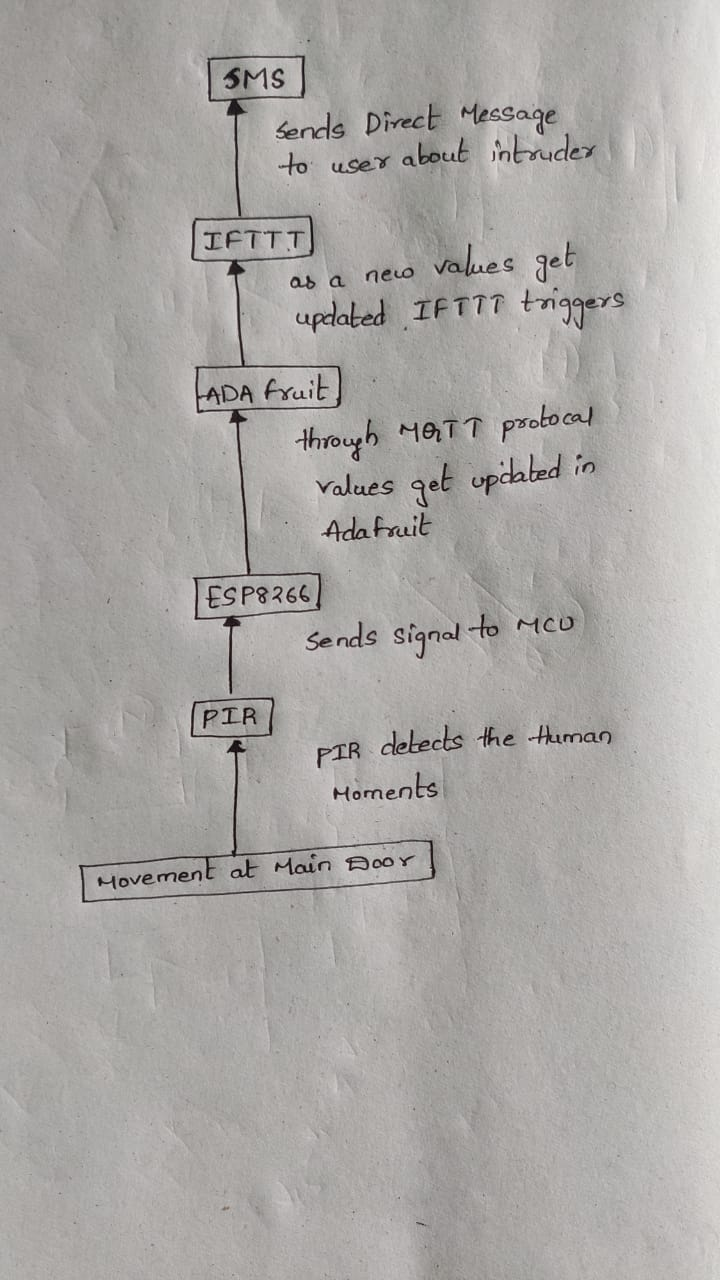 SMS
Sends Direct Message
to user about intruder
IFTTT
as a new values get
updated IFTTT triggers
ADA fruit
through MQTT protocal
values get updated in
Adafruit
ESP8266
Sends signal to MCU
PIR
PIR detects the Human
Moments
Movement at Main Door